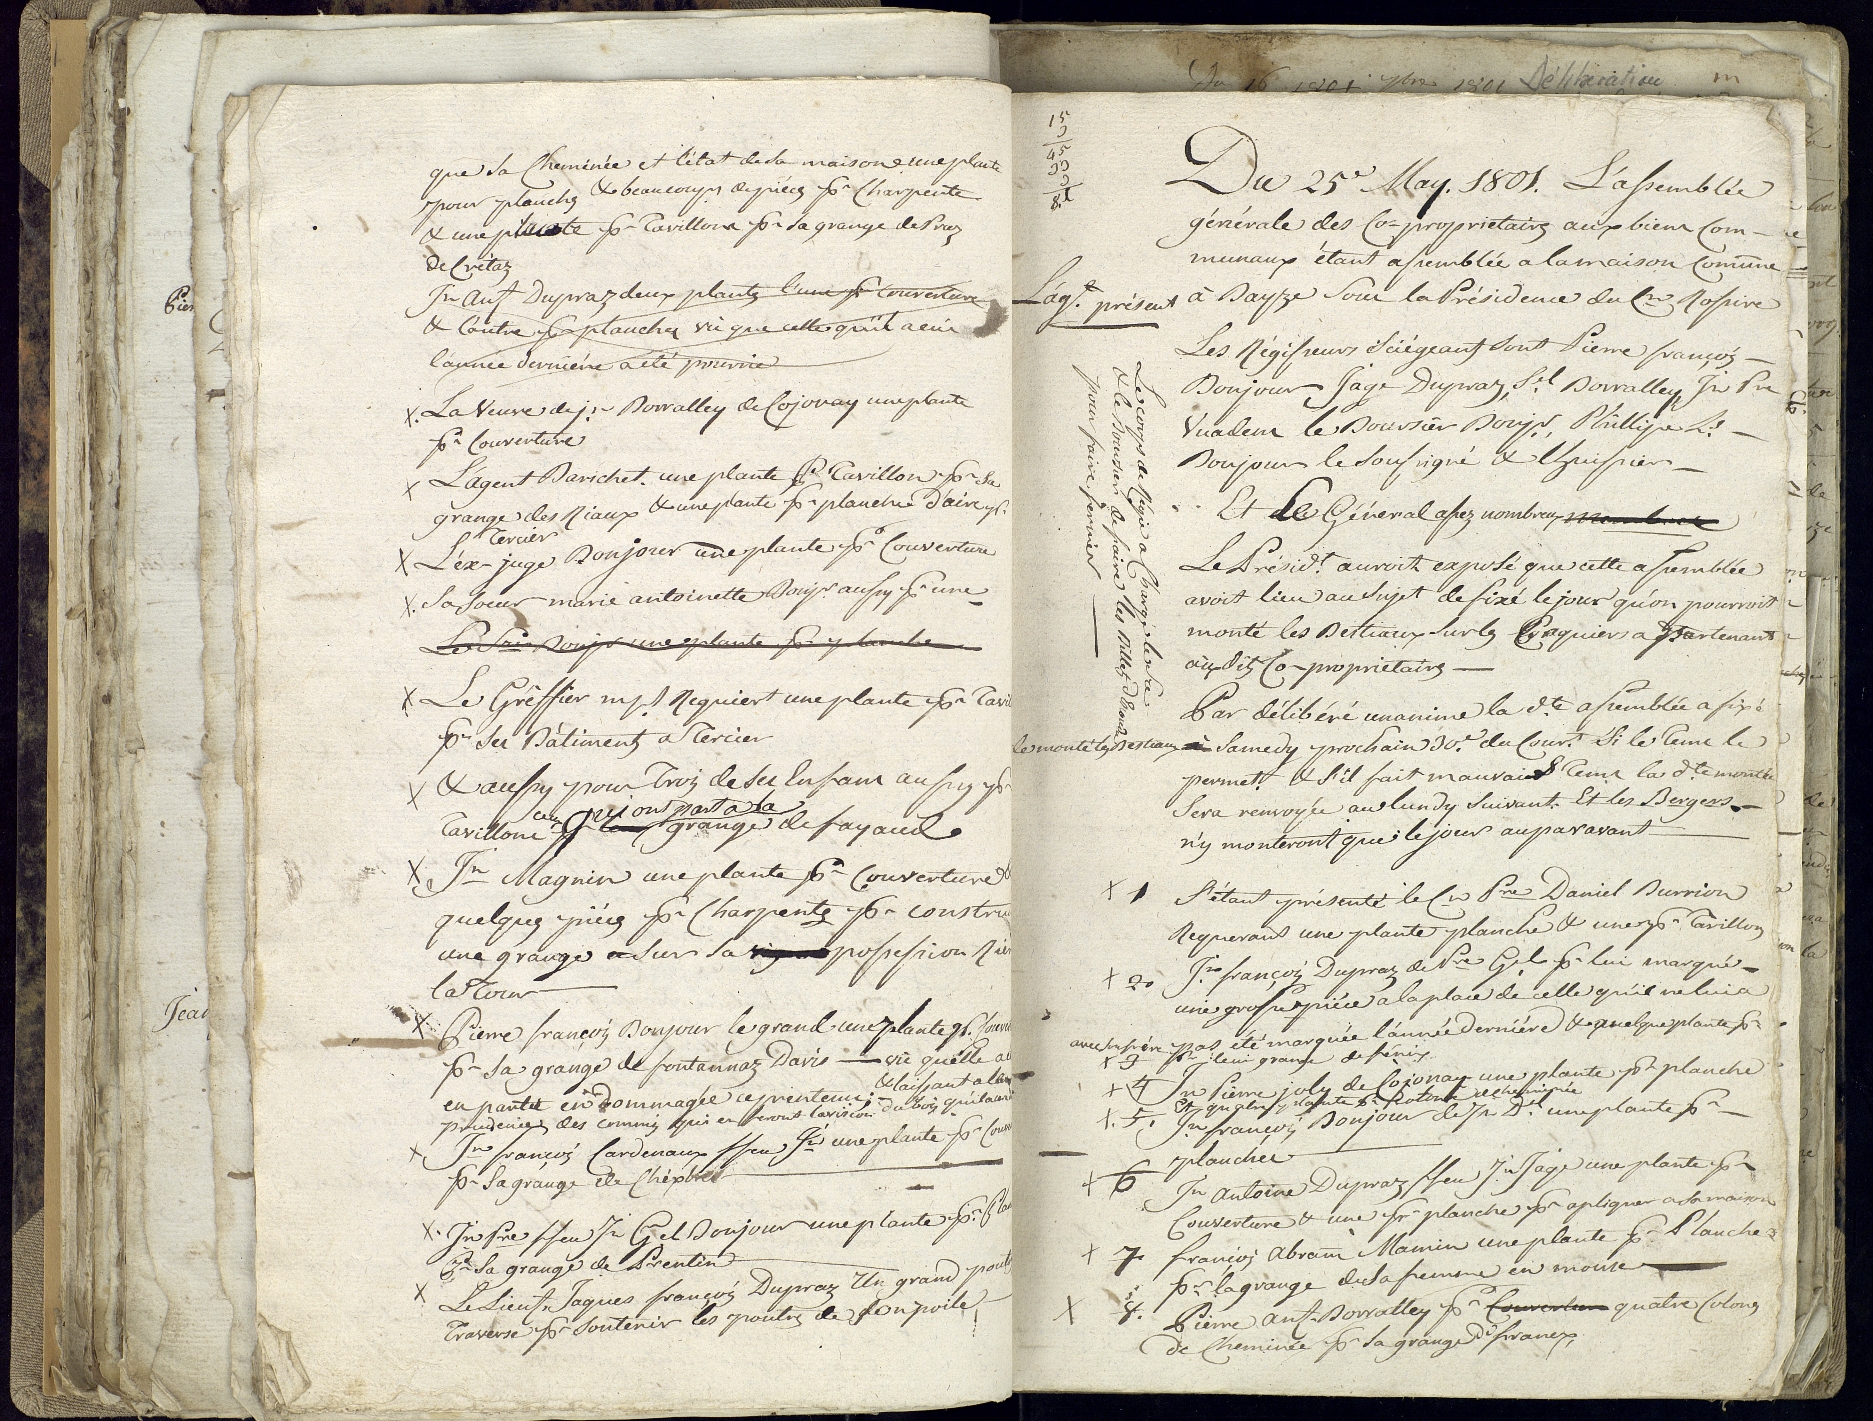 que sa Cheminée et l'état de sa maison une plante
pour planches & beaucoups de pièces pr Charpente
& une plante pr Tavillons pr sa grange de Praz
de Crétaz
Jn Ant Dupraz deux plantes l'une pr Couverture
& l'autre pr planches vû que celle qu'il a eüe
l'année dernière a été pourrie
x. La Veuve de jn Borralley de Cojonay une plante
pr Couverture
x L'agent Barichet une plante pr Tavillon pr sa
grange des Riaux & une plante pr planche d'aire pr
Tercier
x L'éx-juge Bonjour une plante pr Couverture
x. Sa soeur marie antoinette Bonjr aussy pr une
Le Bonjr une plante pr planche
x Le Greffier Requiert une plante pr Tavil
pr ses Bâtiments a Tercier
x & aussy pour Trois de ses Enfans aussy pr
ceux qui ont part a la
Tavillons grange de fayaud
x Jn Magnin une plante pr Couverture &
quelques pièces pr Charpente pr constru
une grange sur sa possession Rier
la Tour
x Pierre françois Bonjour le grand une plante pr Couver
pr sa grange de fontannaz Davis vû quelle a
en partie été Dommagée ce printems & laissant a la
prudence des commis qui en feront la vision du bois qu'il aura
x Jn françois Cardenaux ffeu une plante pr Couv
pr sa grange de Chéxbres
x. Jn Pre ffeu Jn Gel Bonjour une plante pr Plan
pr sa grange de Prentin
x Le Lieut Jaques françois Dupraz Un grand pout
Traverse pr soutenir les poutres de son poile
Pier
Jean
Du 16 1801 Délibération
15
3
45
33
3
81
Du 25e May. 1801. L'assemblée
générale des Co-proprietaires aux biens Com-
munaux étant assemblée a la maison Commune
L'agt présent à Bayze sous la Présidence du Cn Rossire
Les Régisseurs Siégeants sont Pierre françois
Bonjour, Jage Dupraz, Sel Borralley, Jn Pre
Vuadens le Boursier Bonjr, Phillipe Ls
Bonjour le soussigné & l'huissier
Et Le Géneral assez nombreux
Le Présidt auroit exposé que cette assemblée
avoit lieu au sujet de fixé le jour qu'on pourroit
monté les Bestiaux sur les Paquiers apartenants
aux dits Co-proprietaires
Le corps de Régie a Chargé le Sre
& le Boursier de faire les Billets
pour faire fermer
Par délibéré unanime la dte assemblée a fixé
de monté les Bestiaux Samedy prochain 30e du Court Si le Tems le
permet & s'il fait mauvais Tems la dte montée
Sera renvoyée au lundy suivant. Et les Bergers
n'y monteront que le jour auparavant
x 1 S'étant présenté le Cn Pre Daniel Burrion
Requerant une plante planche & une pr Tavillon
x 2. Jn françois Dupraz de Pre Gel pr lui marqué
une grosse pièce a la place de celle qu'il ne lui a
pas été marquée l'année dernière & quelque plante pr
avec son frère
x 3 pr leur grange de fénix
x 4 Jn Pierre joly de Cojonay une plante pr planche
Et quatre plante pr Colonne de cheminée
x. 5. Jn françois Bonjour de Jn Dl une plante pr
planches
x 6 Jn antoine Dupraz ffeu Jn Jage une plante pr
Couverture & une pr planche pr apliquer a sa maison
x 7 françois abram Mamin une plante pr Planche
pr la grange de sa femme en mouse
x 8. Pierre ant Borralley pr Couverture quatre Colones
de Cheminée pr sa grange de franex